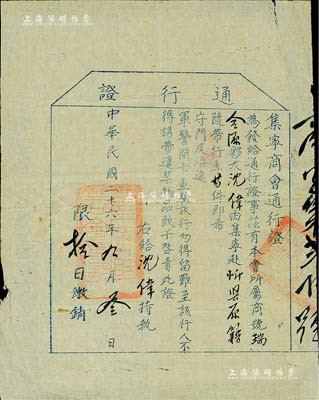 上海陽明拍賣
通行證
集寧商會通行證
為發給通行證事茲有本會所屬商號瑞
夥友沈偉由集寧赴忻縣原籍
隨帶行李 件即希
守門及沿途
軍警關卡查驗放行勿得留難至該行人不
得攜帶違禁物品致干咎責此證
右給沈偉持執
中華民國二十六年九月叁日
限拾日繳銷
上海陽明拍賣